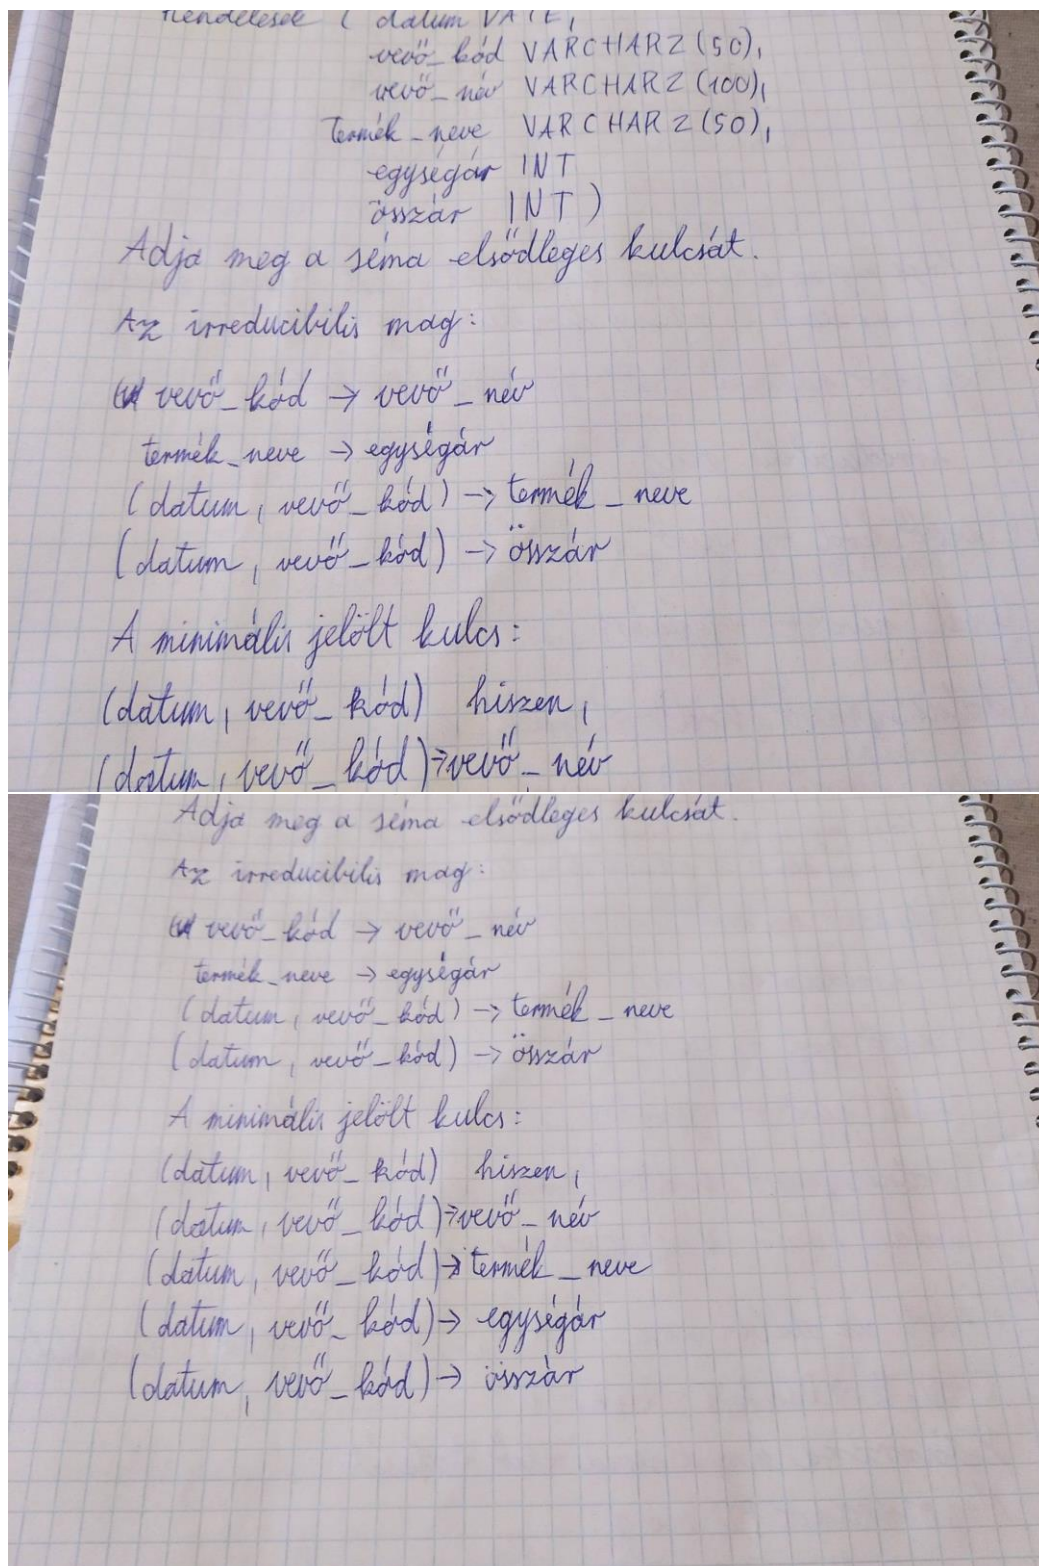 Rendelések ( datum DATE,
vevő_kód VARCHAR2(50),
vevő_név VARCHAR2(100),
Termék_neve VARCHAR2(50),
egységár INT
összár INT)
Adja meg a séma elsődleges kulcsát.
Az irreducibilis mag:
vevő_kód → vevő_név
termék_neve → egységár
(datum, vevő_kód) → termék_neve
(datum, vevő_kód) → összár
A minimális jelölt kulcs:
(datum, vevő_kód) hiszen,
(datum, vevő_kód)→vevő_név
Adja meg a séma elsődleges kulcsát.
Az irreducibilis mag:
vevő_kód → vevő_név
termék_neve → egységár
(datum, vevő_kód) → termék_neve
(datum, vevő_kód) → összár
A minimális jelölt kulcs:
(datum, vevő_kód) hiszen,
(datum, vevő_kód)→vevő_név
(datum, vevő_kód)→ termék_neve
(datum, vevő_kód)→ egységár
(datum, vevő_kód)→ összár